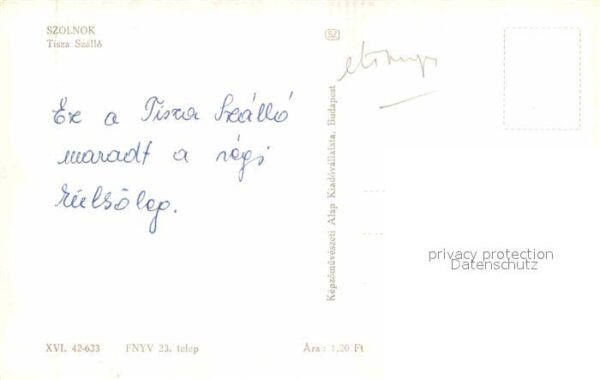 SZOLNOK
Tisza Szálló
Ez a Tisza Szálló
maradt a régi
külsőleg.
Képzőművészeti Alap Kiadóvállalata, Budapest
privacy protection
Datenschutz
XVI. 42-633 FNYV 23. telep Ára: 1,20 Ft